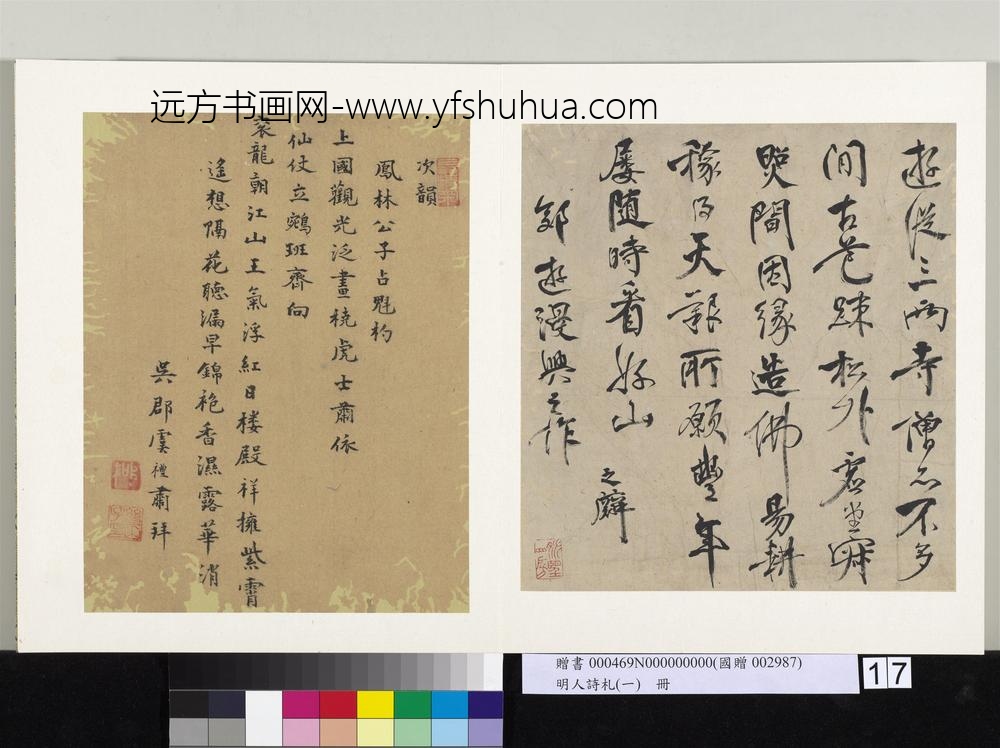 远方书画网-www.yfshuhua.com
遊從三兩寺僧不多
閒古疎松外虛堂
間因緣造佛易耕
稼天艱所願豐年
屡随時看好山
之癖
郊遊漫興之作
次韻
鳳林公子占魁杓
上國觀光泛畫橈虎士肅依
仙仗立鵷班齊向
衮龍朝江山王氣浮紅日楼殿祥擁紫霄
遙想隔花聽漏早錦袍香濕露華消
吳郡虞禮肅拜
贈書 000469N000000000(國贈 002987)
明人詩札(一) 冊
17